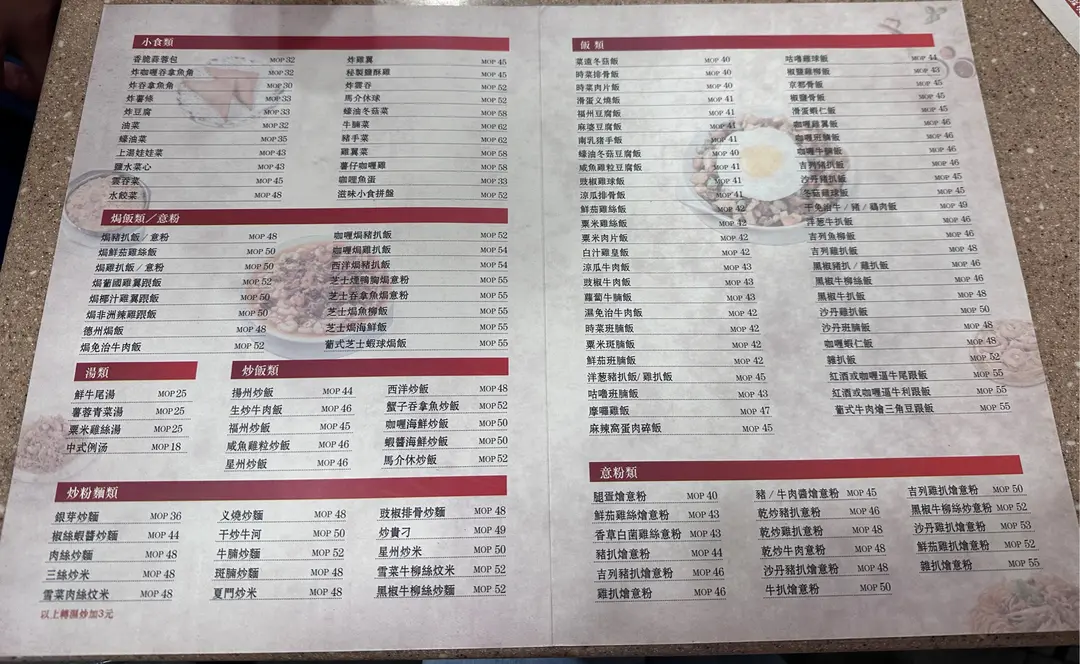 小食類
香脆蒜蓉包 MOP 32
炸咖喱吞拿魚角 MOP 32
炸吞拿魚角 MOP 30
炸薯條 MOP 33
炸豆腐 MOP 33
油菜 MOP 32
蠔油菜 MOP 35
上湯娃娃菜 MOP 43
鹽水菜心 MOP 43
雲吞菜 MOP 45
水餃菜 MOP 48
炸雞翼 MOP 45
秘製鹽酥雞 MOP 45
炸雲吞 MOP 52
馬介休球 MOP 52
蠔油冬菇菜 MOP 58
牛腩菜 MOP 62
豬手菜 MOP 62
雞翼菜 MOP 58
薯仔咖喱雞 MOP 58
咖喱魚蛋 MOP 33
滋味小食拼盤 MOP 52
焗飯類/意粉
焗豬扒飯/意粉 MOP 48
焗鮮茄雞絲飯 MOP 50
焗雞扒飯/意粉 MOP 50
焗葡國雞翼跟飯 MOP 52
焗椰汁雞翼跟飯 MOP 50
焗非洲辣雞跟飯 MOP 50
德州焗飯 MOP 48
焗免治牛肉飯 MOP 52
咖喱焗豬扒飯 MOP 52
咖喱焗雞扒飯 MOP 54
西洋焗豬扒飯 MOP 54
芝士煙鴨胸焗意粉 MOP 55
芝士吞拿魚焗意粉 MOP 55
芝士焗魚柳飯 MOP 55
芝士焗海鮮飯 MOP 55
葡式芝士蝦球焗飯 MOP 55
湯類
鮮牛尾湯 MOP 25
薯蓉青菜湯 MOP 25
粟米雞絲湯 MOP 25
中式例汤 MOP 18
炒飯類
揚州炒飯 MOP 44
生炒牛肉飯 MOP 46
福州炒飯 MOP 45
咸魚雞粒炒飯 MOP 46
星州炒飯 MOP 46
西洋炒飯 MOP 48
蟹子吞拿魚炒飯 MOP 52
咖喱海鮮炒飯 MOP 50
蝦醬海鮮炒飯 MOP 50
馬介休炒飯 MOP 52
炒粉麵類
銀芽炒麵 MOP 36
椒絲蝦醬炒麵 MOP 44
肉絲炒麵 MOP 48
三絲炒米 MOP 48
雪菜肉絲炆米 MOP 48
义燒炒麵 MOP 48
干炒牛河 MOP 50
牛腩炒麵 MOP 52
斑腩炒麵 MOP 48
夏門炒米 MOP 48
豉椒排骨炒麵 MOP 48
炒貴刁 MOP 49
星州炒米 MOP 50
雪菜牛柳絲炆米 MOP 52
黑椒牛柳絲炒麵 MOP 52
以上轉濕炒加3元
飯類
菜遠冬菇飯 MOP 40
時菜排骨飯 MOP 40
時菜肉片飯 MOP 40
滑蛋义燒飯 MOP 41
福州豆腐飯 MOP 41
麻婆豆腐飯 MOP 41
南乳豬手飯 MOP 41
蠔油冬菇豆腐飯 MOP 40
咸魚雞粒豆腐飯 MOP 41
豉椒雞球飯 MOP 41
涼瓜排骨飯 MOP 41
鮮茄雞絲飯 MOP 42
粟米雞絲飯 MOP 42
粟米肉片飯 MOP 42
白汁雞皇飯 MOP 42
涼瓜牛肉飯 MOP 43
豉椒牛肉飯 MOP 43
蘿蔔牛腩飯 MOP 43
濕免治牛肉飯 MOP 42
時菜斑腩飯 MOP 42
粟米斑腩飯 MOP 42
鮮茄斑腩飯 MOP 42
洋葱豬扒飯/雞扒飯 MOP 45
咕嚕斑腩飯 MOP 43
摩囉雞飯 MOP 47
麻辣窩蛋肉碎飯 MOP 45
咕嚕雞球飯 MOP 44
椒鹽雞柳飯 MOP 43
京都骨飯 MOP 45
椒鹽骨飯 MOP 45
滑蛋蝦仁飯 MOP 45
咖喱雞翼飯 MOP 46
咖喱斑腩飯 MOP 46
咖喱牛腩飯 MOP 46
吉列豬扒飯 MOP 46
沙丹豬扒飯 MOP 45
冬菇雞球飯 MOP 45
干免治牛/豬/鷄肉飯 MOP 49
洋葱牛扒飯 MOP 46
吉列魚柳飯 MOP 46
吉列雞扒飯 MOP 48
黑椒豬扒/雞扒飯 MOP 46
黑椒牛柳絲飯 MOP 46
黑椒牛扒飯 MOP 48
沙丹雞扒飯 MOP 50
沙丹斑腩飯 MOP 48
咖喱蝦仁飯 MOP 48
雜扒飯 MOP 52
紅酒或咖喱逼牛尾跟飯 MOP 55
紅酒或咖喱逼牛利跟飯 MOP 55
葡式牛肉燴三角豆跟飯 MOP 55
意粉類
腿蛋燴意粉 MOP 40
鮮茄雞絲燴意粉 MOP 43
香草白菌雞絲意粉 MOP 43
豬扒燴意粉 MOP 44
吉列豬扒燴意粉 MOP 46
雞扒燴意粉 MOP 46
豬/牛肉醬燴意粉 MOP 45
乾炒豬扒意粉 MOP 46
乾炒雞扒意粉 MOP 48
乾炒牛肉意粉 MOP 48
沙丹豬扒燴意粉 MOP 48
牛扒燴意粉 MOP 50
吉列雞扒燴意粉 MOP 50
黑椒牛柳絲炒意粉 MOP 52
沙丹雞扒燴意粉 MOP 53
鮮茄雞扒燴意粉 MOP 52
雜扒燴意粉 MOP 55